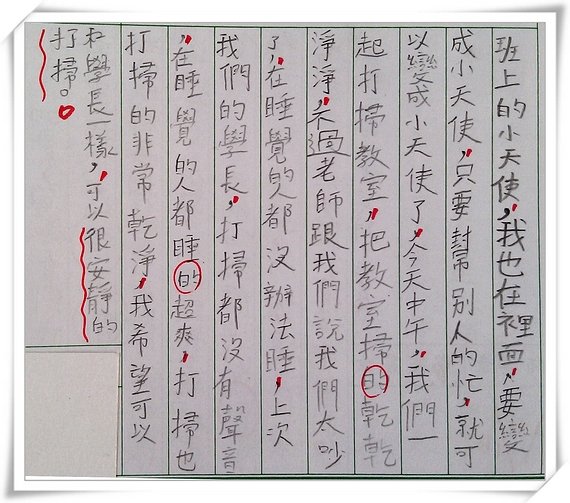 班上的小天使，我也在裡面，要變
成小天使，只要幫別人的忙，就可
以變成小天使了，今天中午，我們一
起打掃教室，把教室掃的乾乾
淨淨，不過老師跟我們說我們太吵
了，在睡覺的人都沒辦法睡，上次
我們的學長，打掃都沒有聲音
，在睡覺的人都睡的超爽，打掃也
打掃的非常乾淨，我希望可以
和學長一樣，可以很安靜的
打掃。